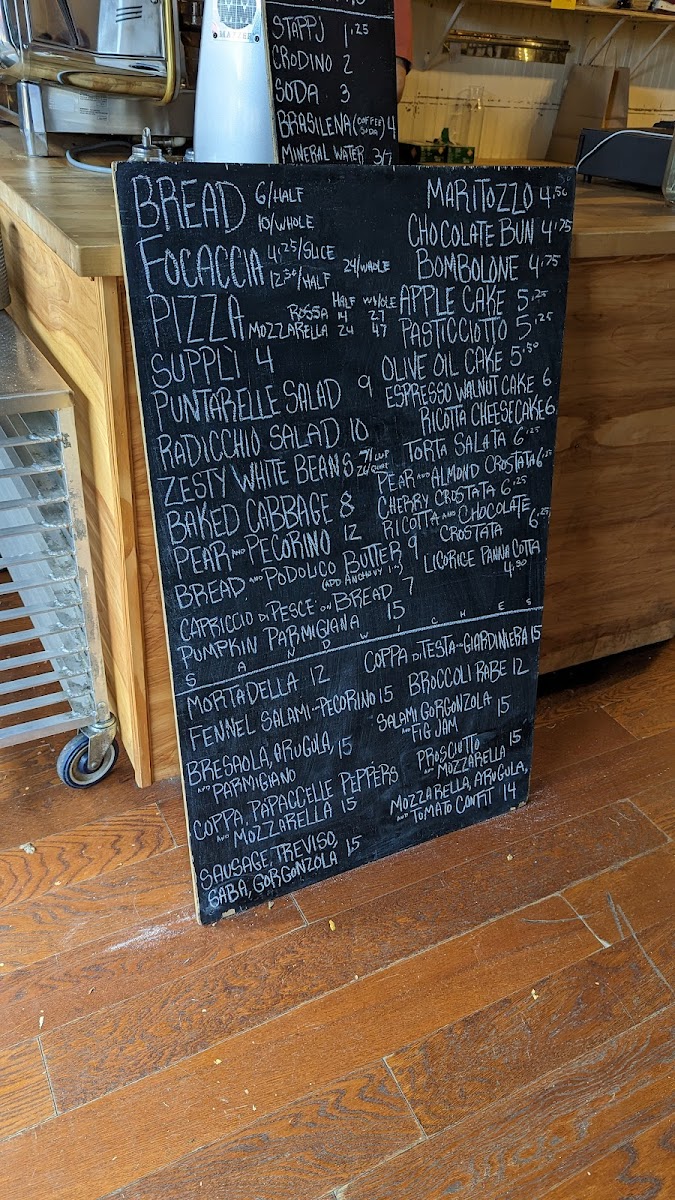 STAPPJ 1.25
CRODINO 2
SODA 3
BRASILENA (COFFEE SODA) 4
MINERAL WATER 3/7
BREAD 6/HALF
10/WHOLE
FOCACCIA 4.25/SLICE
12.50/HALF 24/WHOLE
PIZZA HALF WHOLE
ROSSA 14 27
MOZZARELLA 24 47
SUPPLÌ 4
PUNTARELLE SALAD 9
RADICCHIO SALAD 10
ZESTY WHITE BEANS 7/CUP
26/QUART
BAKED CABBAGE 8
PEAR AND PECORINO 12
BREAD AND PODOLICO BUTTER 9
(ADD ANCHOVY 1.50)
CAPRICCIO DI PESCE ON BREAD 7
PUMPKIN PARMIGIANA 15
MARITOZZO 4.50
CHOCOLATE BUN 4.75
BOMBOLONE 4.75
APPLE CAKE 5.25
PASTICCIOTTO 5.25
OLIVE OIL CAKE 5.50
ESPRESSO WALNUT CAKE 6
RICOTTA CHEESECAKE 6
TORTA SALATA 6.25
PEAR AND ALMOND CROSTATA 6.25
CHERRY CROSTATA 6.25
RICOTTA AND CHOCOLATE
CROSTATA 6.25
LICORICE PANNA COTTA
4.50
SANDWICHES
MORTADELLA 12
FENNEL SALAMI PECORINO 15
BRESAOLA, ARUGULA,
AND PARMIGIANO 15
COPPA, PAPACCELLE PEPPERS
AND MOZZARELLA 15
SAUSAGE, TREVISO,
SABA, GORGONZOLA 15
COPPA DI TESTA GIARDINIERA 15
BROCCOLI RABE 12
SALAMI GORGONZOLA
AND FIG JAM 15
PROSCIUTTO
AND MOZZARELLA 15
MOZZARELLA, ARUGULA,
AND TOMATO CONFIT 14